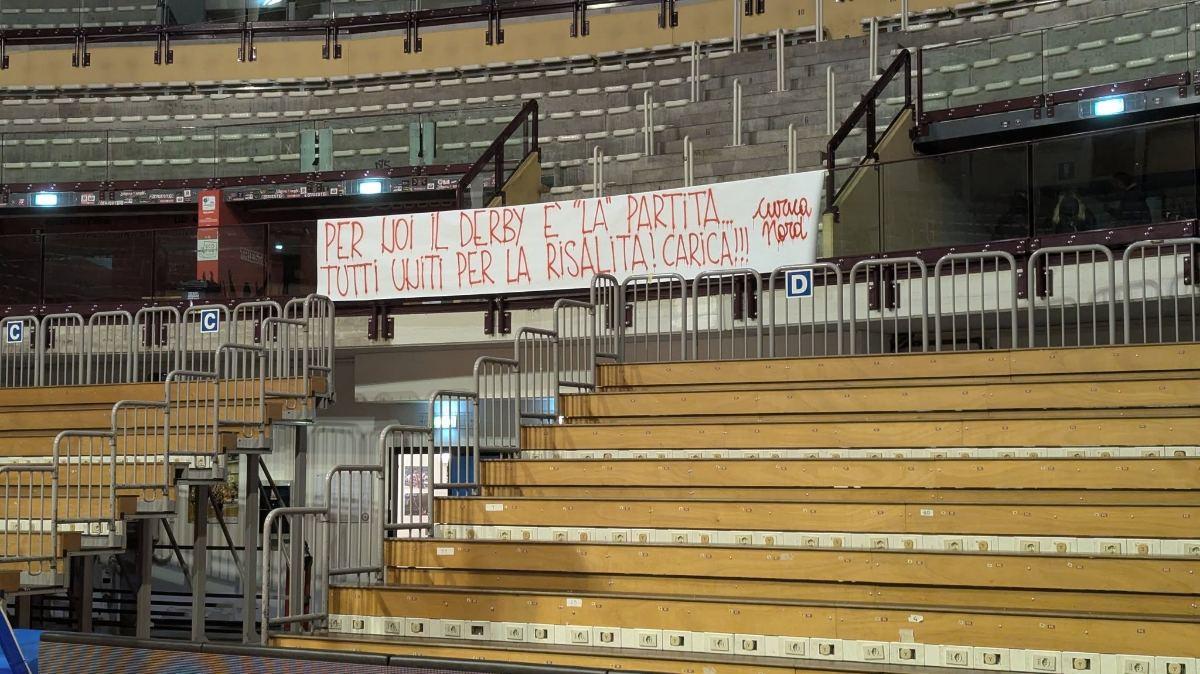 PER NOI IL DERBY E' "LA" PARTITA...
TUTTI UNITI PER LA RISALITA! CARICA!!!
CURVA
NORD
D
C
C